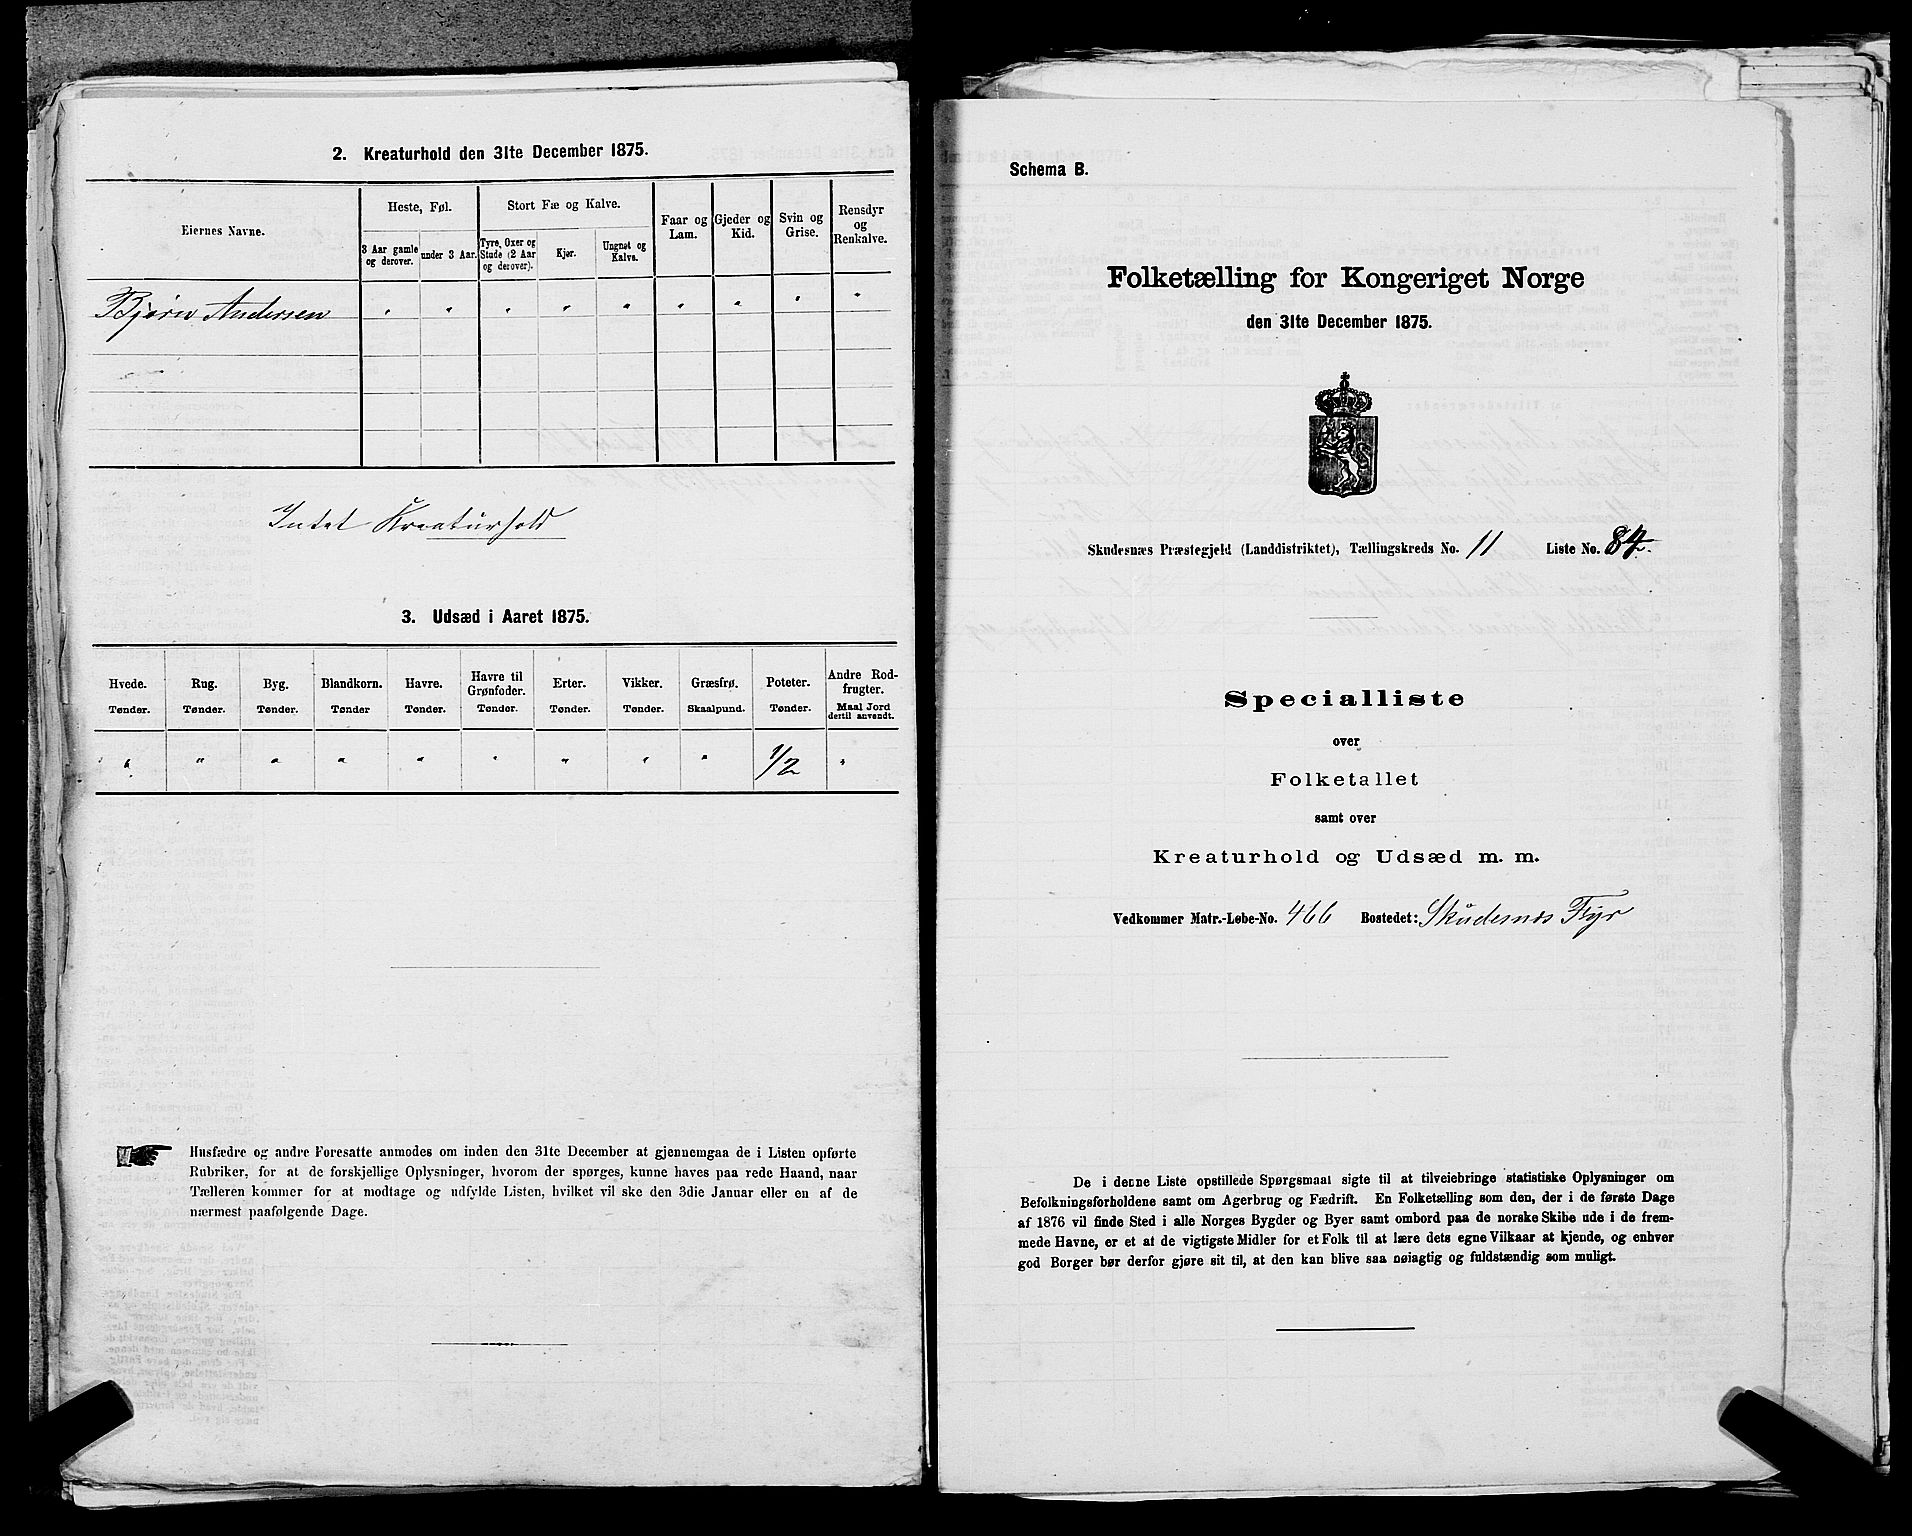 2. Kreaturhold den 31te December 1875.
Eiernes Navne.
Heste, Føl.
Stort Fæ og Kalve.
Faar og Lam.
Gjeder og Kid.
Svin og Grise.
Rensdyr og Renkalve.
3 Aar gamle og derover.
under 3 Aar.
Tyre, Oxer og Stude (2 Aar og derover).
Kjør.
Ungnøt og Kalve.
Bjørn Andersen " " " " " " " " "
Intet Kreaturhold
3. Udsæd i Aaret 1875.
Hvede. Rug. Byg. Blandkorn. Havre. Havre til Grønfoder. Erter. Vikker. Græsfrø. Poteter. Andre Rodfrugter.
Tønder. Tønder. Tønder. Tønder Tønder. Tønder. Tønder. Tønder. Skaalpund. Tønder. Maal Jord dertil anvendt.
" " " " " " " " " 1/2 "
Husfædre og andre Foresatte anmodes om inden den 31te December at gjennemgaa de i Listen opførte
Rubriker, for at de forskjellige Oplysninger, hvorom der spørges, kunne haves paa rede Haand, naar
Tælleren kommer for at modtage og udfylde Listen, hvilket vil ske den 3die Januar eller en af de
nærmest paafølgende Dage.
Schema B.
Folketælling for Kongeriget Norge
den 31te December 1875.
Skudesnæs Præstegjeld (Landdistriktet), Tællingskreds No. 11 Liste No.
Specialliste
over
Folketallet
samt over
Kreaturhold og Udsæd m. m.
Vedkommer Matr.-Løbe-No. 466 Bostedet: Skudesnæs Fyr
De i denne Liste opstillede Spørgsmaal sigte til at tilveiebringe statistiske Oplysninger om
Befolkningsforholdene samt om Agerbrug og Fædrift. En Folketælling som den, der i de første Dage
af 1876 vil finde Sted i alle Norges Bygder og Byer samt ombord paa de norske Skibe ude i de frem-
mede Havne, er et af de vigtigste Midler for et Folk til at lære dets egne Vilkaar at kjende, og enhver
god Borger bør derfor gjøre sit til, at den kan blive saa nøiagtig og fuldstændig som muligt.